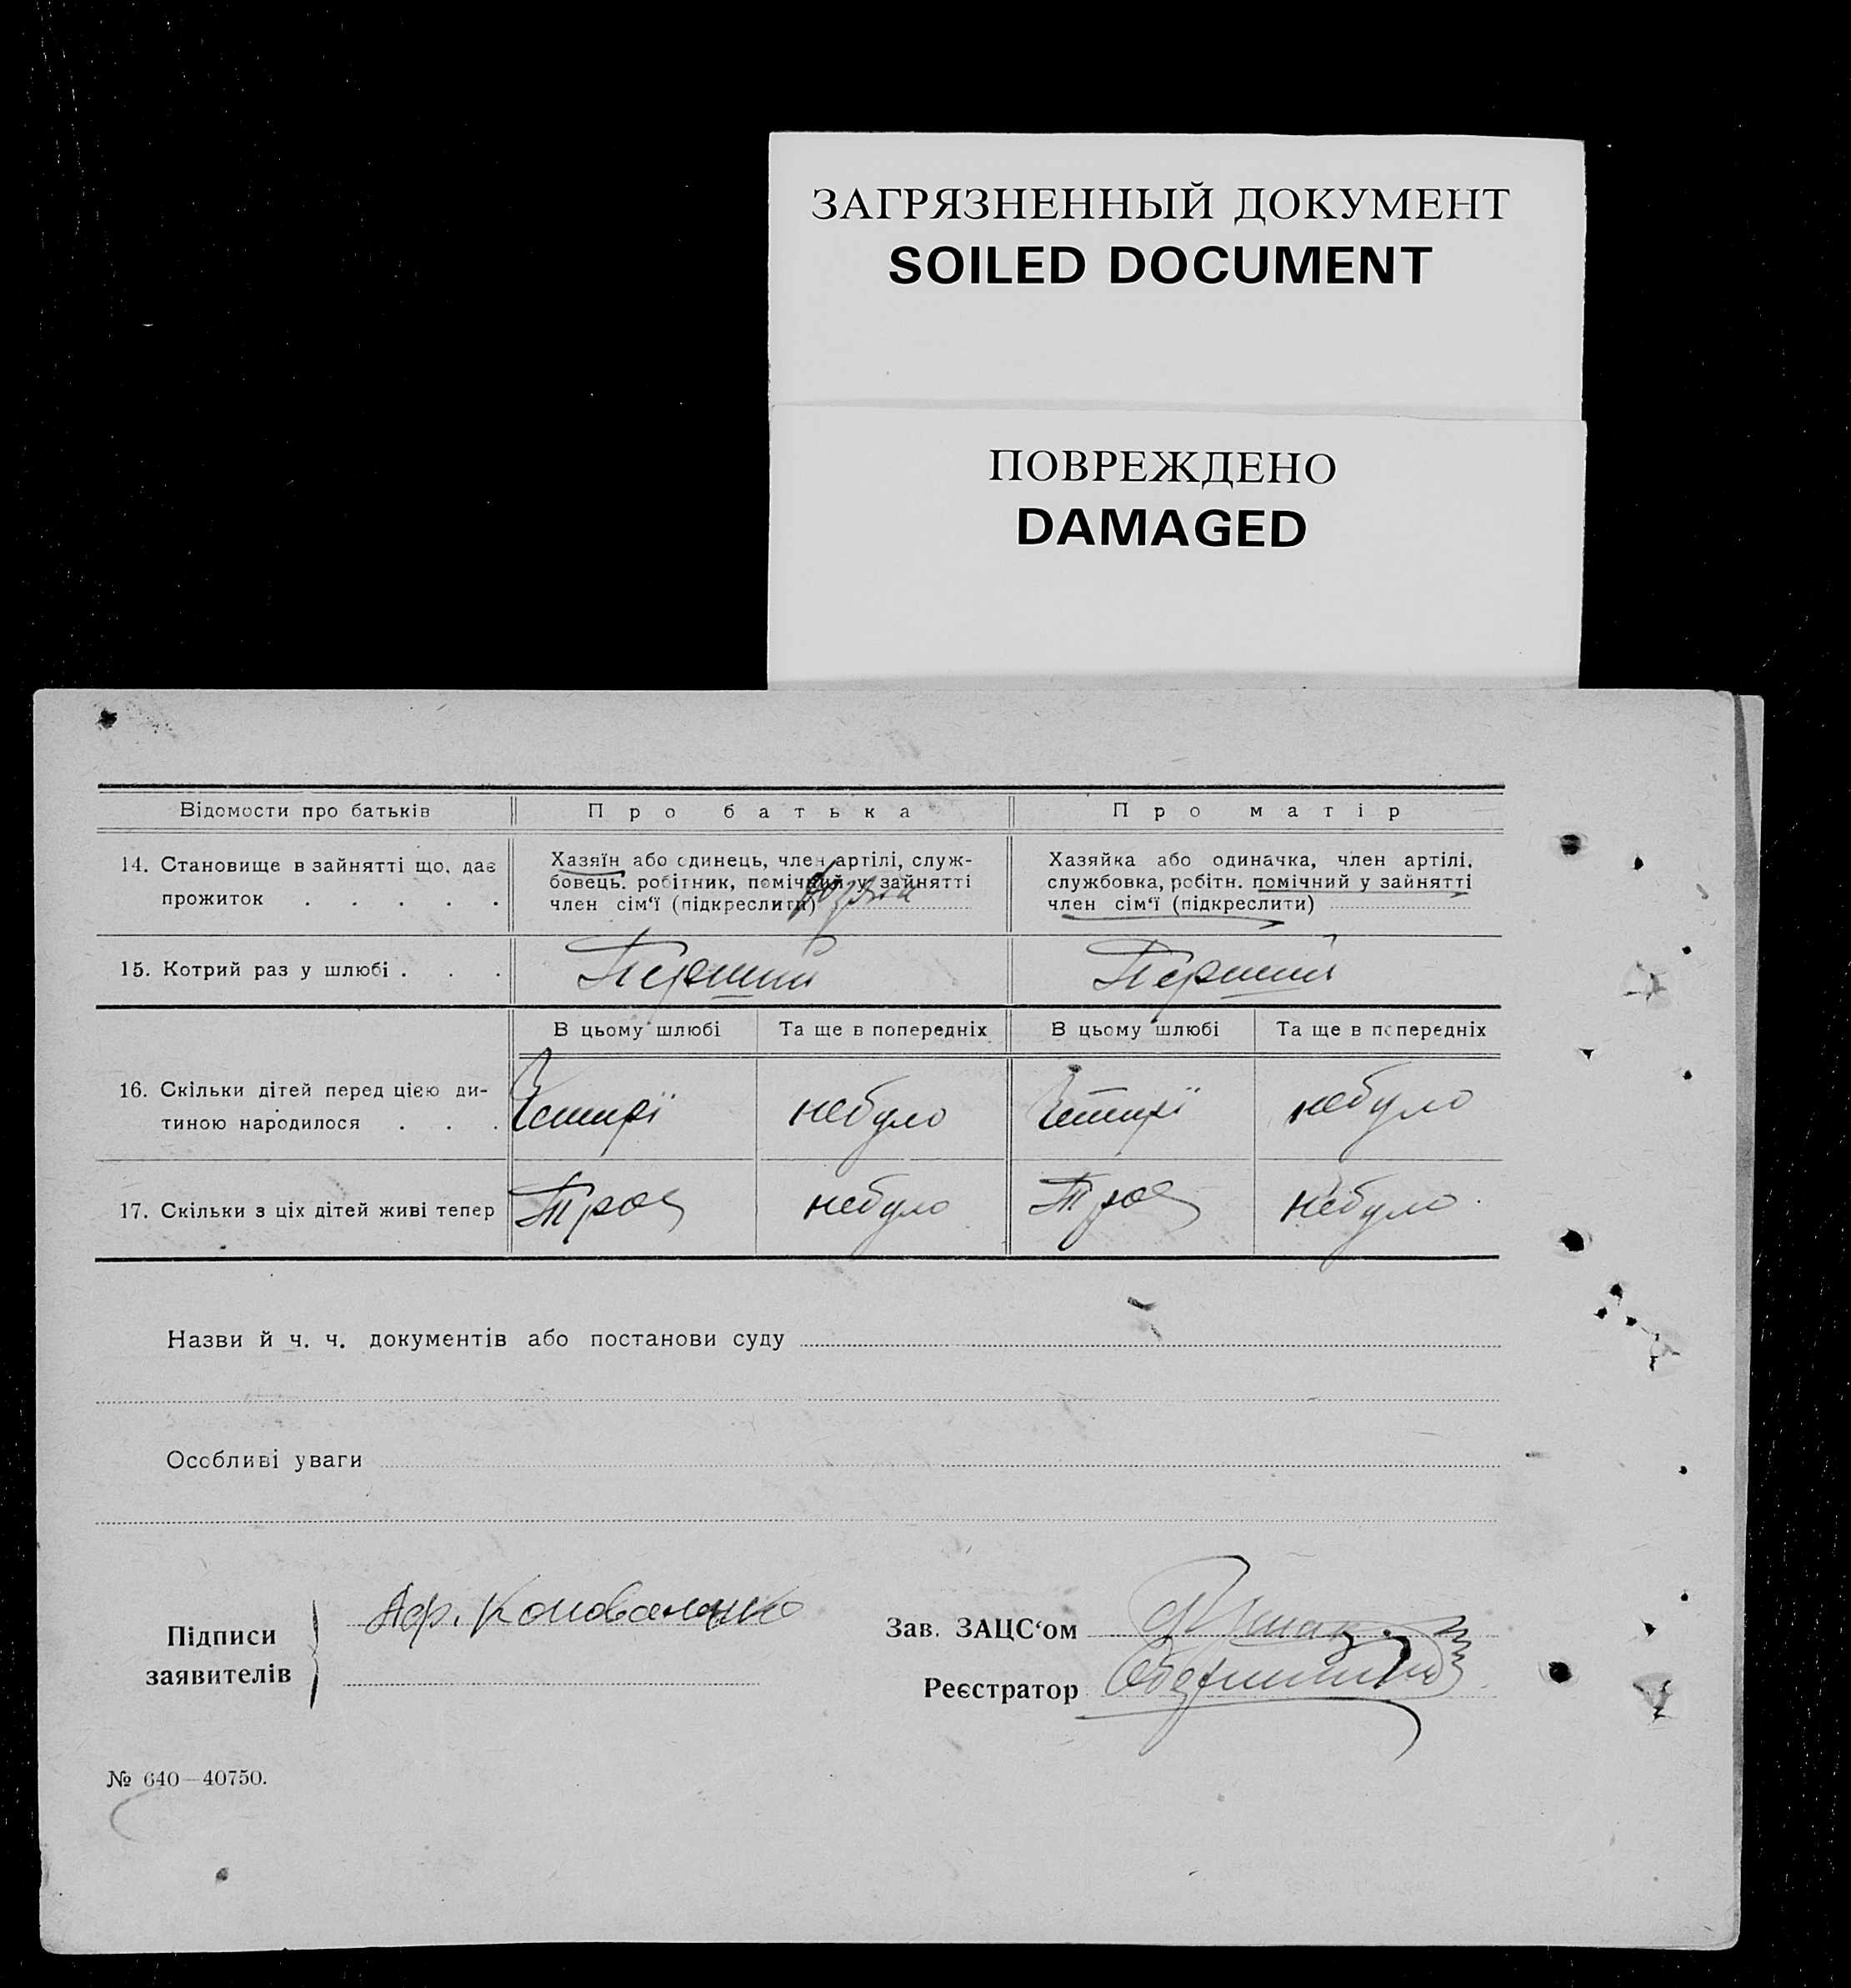 ЗАГРЯЗНЕННЫЙ ДОКУМЕНТ
SOILED DOCUMENT
ПОВРЕЖДЕНО
DAMAGED
Відомости про батьків Про батька Про матір
14. Становище в зайнятті що, дає
прожиток . . . . .
Хазяїн або одинець, член артілі, служ-
бовець. робітник, помічний у зайнятті
член сім'ї (підкреслити)
Хазяйка або одиначка, член артілі,
службовка, робітн. помічний у зайнятті
член сім'ї (підкреслити)
15. Котрий раз у шлюбі . . . Перший Перший
В цьому шлюбі Та ще в попередніх В цьому шлюбі Та ще в попередніх
16. Скільки дітей перед цією ди-
тиною народилося . . . Чотирі небуло Чотирі небуло
17. Скільки з ціх дітей живі тепер Троє небуло Троє небуло
Назви й ч. ч. документів або постанови суду
Особливі уваги
Підписи
заявителів
Аф. Коноваленко
Зав. ЗАЦС'ом
Реєстратор
№ 640—40750.